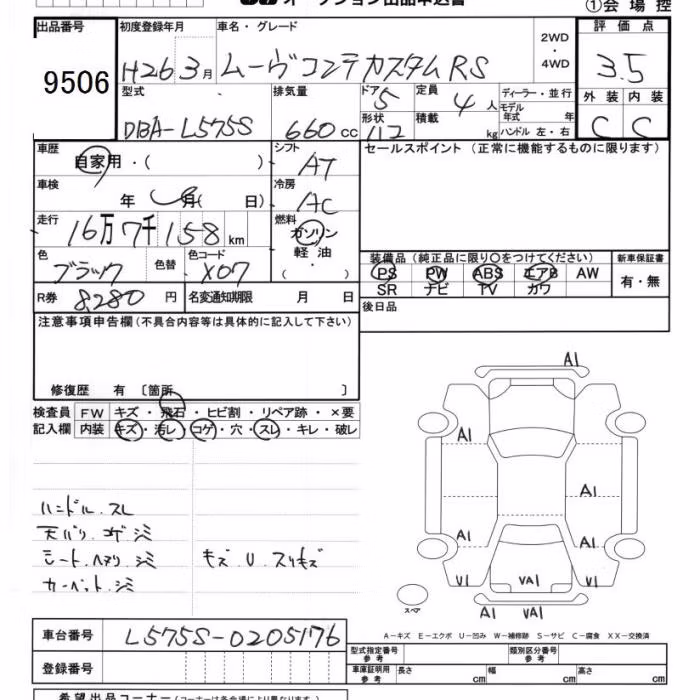 オークション出品申込書
①会場控
出品番号 初度登録年月 車名・グレード 2WD・4WD 評価点
9506 H26 3月 ムーヴコンテカスタムRS 3.5
型式 排気量 ドア 定員 ディーラー・並行 外装 内装
DBA-L575S 660cc 5 4人 モデル年式 年 C C
形状 積載 kg ハンドル 左・右
112
車歴 シフト セールスポイント(正常に機能するものに限ります)
自家用・( ) AT
車検 年 月( 日) 冷房 AC
走行 16万7千158km 燃料 ガソリン・軽油・( )
色 色替 色コード 装備品(純正品に限り○をつけてください) 新車保証書
ブラック X07 PS PW ABS エアB AW 有・無
SR ナビ TV カワ
R券 8,280円 名変通知期限 月 日 後日品
注意事項申告欄(不具合内容等は具体的に記入して下さい)
修復歴 有 〔箇所 〕
検査員 FW キズ・飛石・ヒビ割・リペア跡・×要
記入欄 内装 キズ・汚レ・コゲ・穴・スレ・キレ・破レ
ハンドル.スレ
天バリ.コゲ.シミ
シート.ヘタリ.シミ キズ.U.スリキズ
カーペット.シミ
A1
A1
A1
A1 A1
V1 VA1 V1
A1 VA1
スペア
A-キズ E-エクボ U-凹み W-補修跡 S-サビ C-腐食 XX-交換済
車台番号 L575S-0205176
型式指定番号 参考 類別区分番号 参考
登録番号 車庫証明用 参考 長さ cm 幅 cm 高さ cm
希望出品コーナー(コーナーは各会場により異なります)